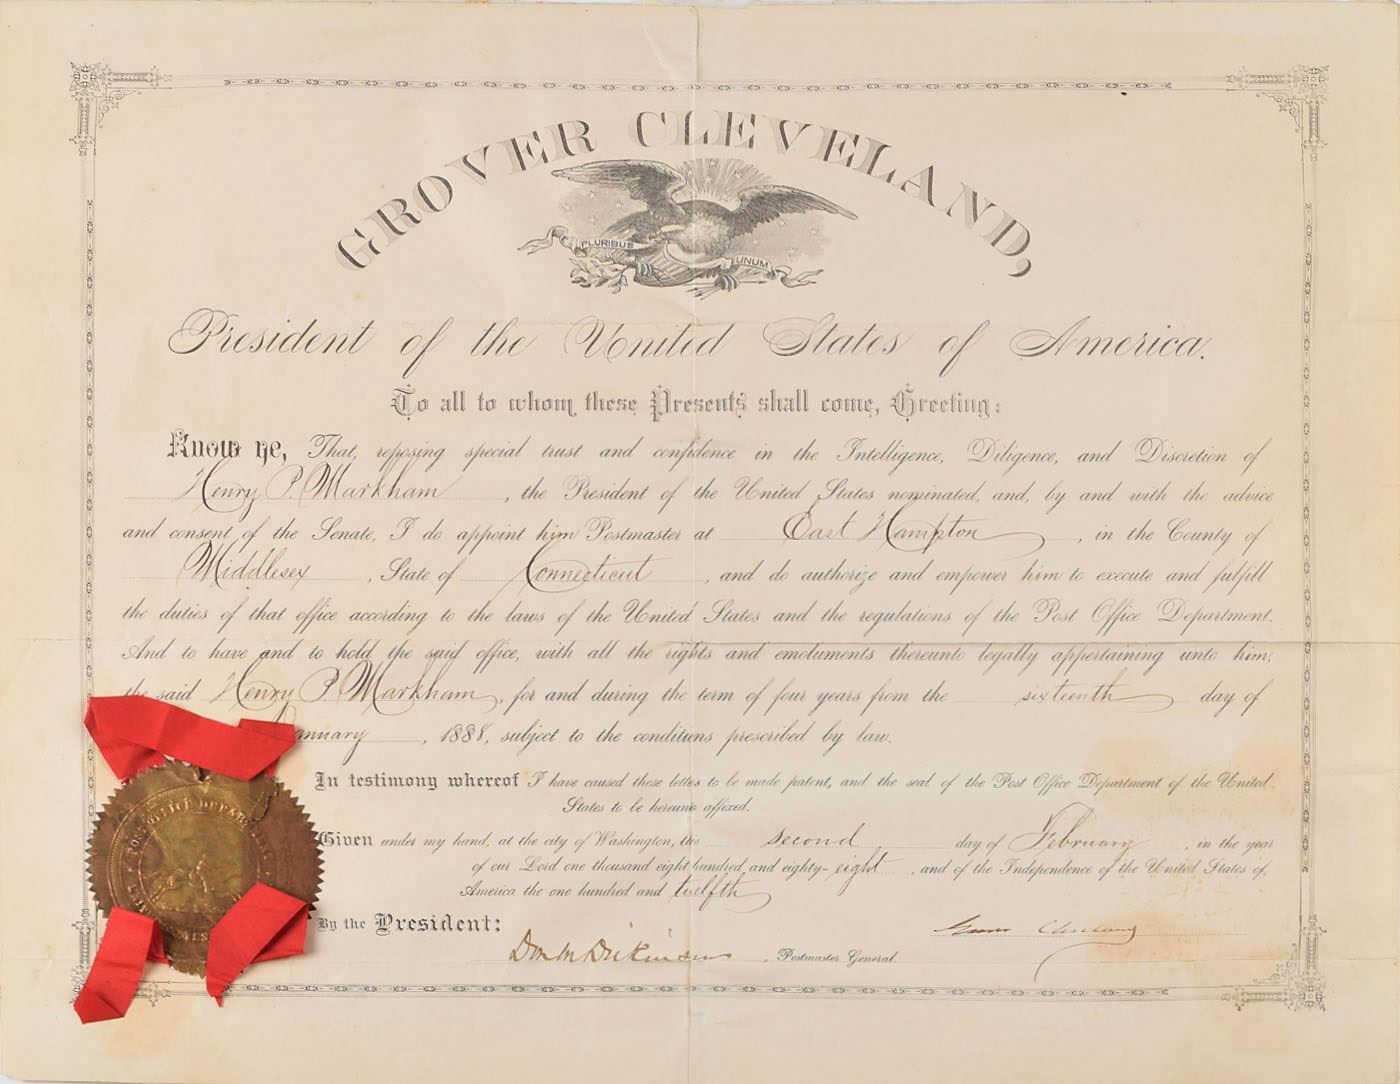 GROVER CLEVELAND,
PLURIBUS UNUM
President of the United States of America.
To all to whom these Presents shall come, Greeting:
Know ye, That, reposing special trust and confidence in the Intelligence, Diligence, and Discretion of
Henry P. Markham, the President of the United States nominated, and, by and with the advice
and consent of the Senate, I do appoint him Postmaster at East Hampton, in the County of
Middlesex, State of Connecticut, and do authorize and empower him to execute and fulfill
the duties of that office according to the laws of the United States and the regulations of the Post Office Department.
And to have and to hold the said office, with all the rights and emoluments thereunto legally appertaining unto him,
the said Henry P. Markham, for and during the term of four years from the sixteenth day of
January, 1888, subject to the conditions prescribed by law.
In testimony whereof I have caused these letters to be made patent, and the seal of the Post Office Department of the United
States to be hereunto affixed.
Given under my hand, at the city of Washington, this second day of February, in the year
of our Lord one thousand eight hundred and eighty-eight, and of the Independence of the United States of
America the one hundred and twelfth
By the President:
Grover Cleveland
Don M. Dickinson, Postmaster General.
POST OFFICE DEPARTMENT